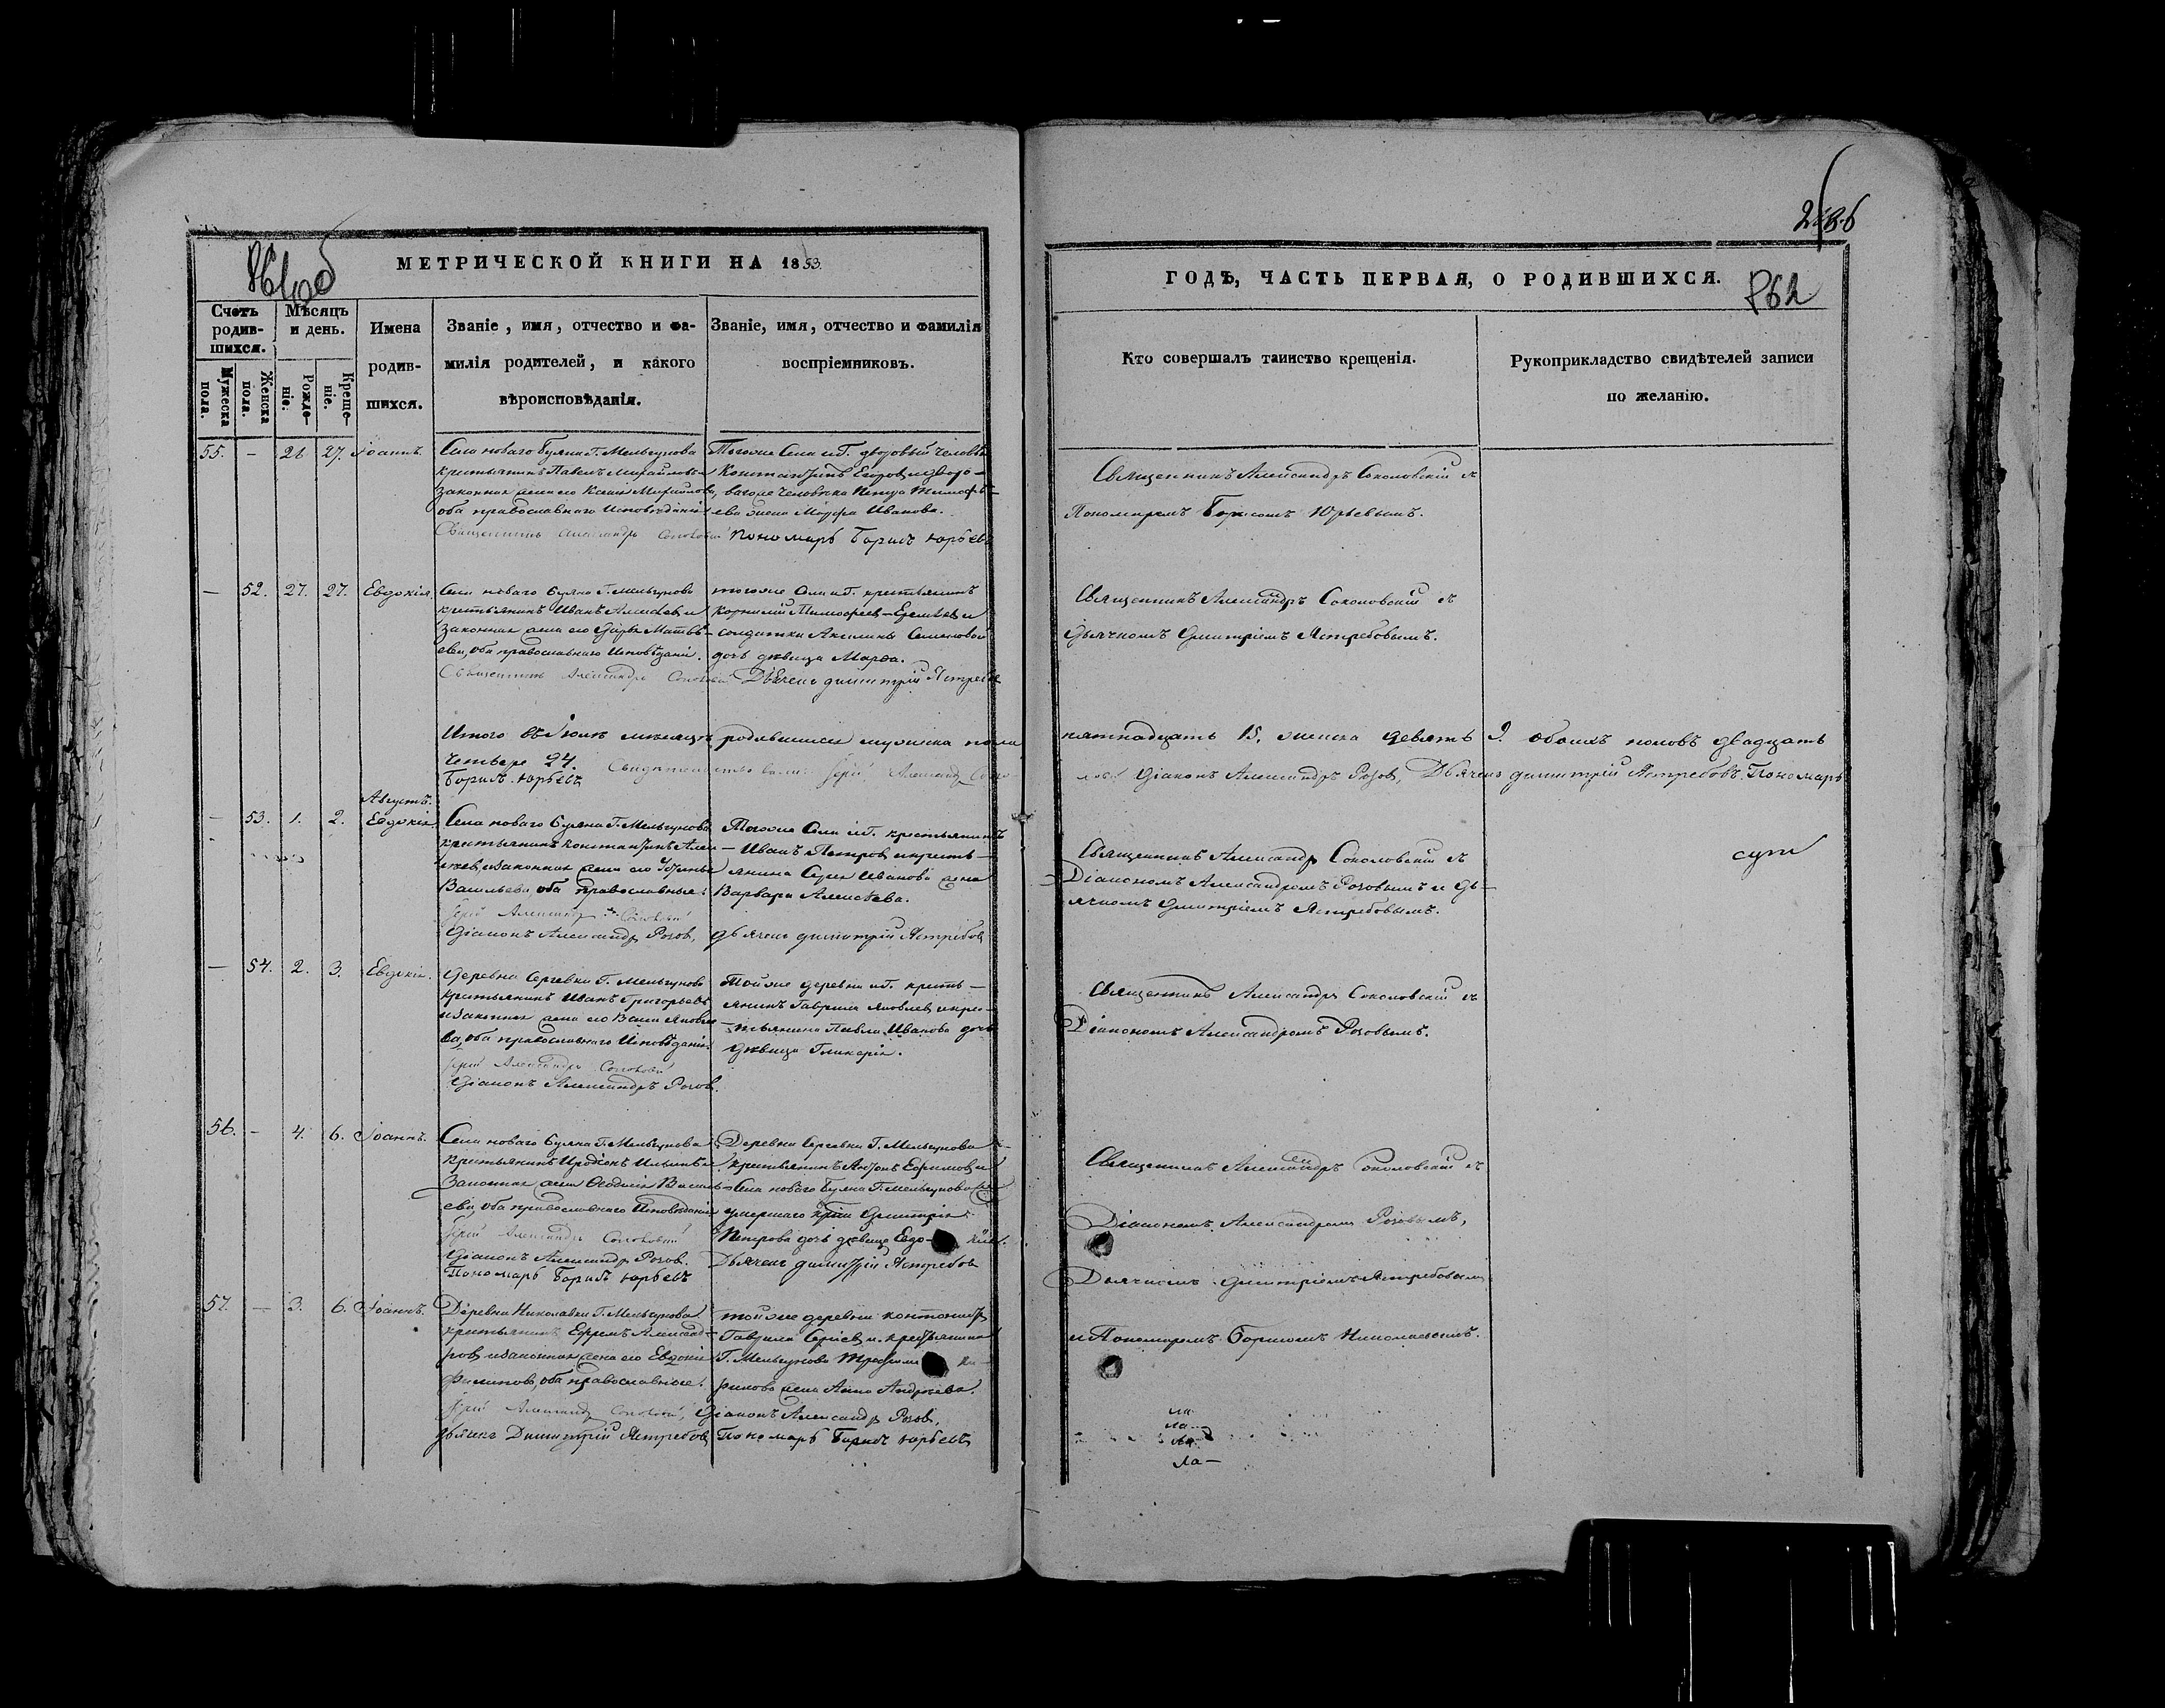 861 об
МЕТРИЧЕСКОЙ КНИГИ НА 1853.
Счетъ родив-шихся.
Мѣсяцъ и день.
Имена родив-шихся.
Званіе, имя, отчество и фа-
милія родителей, и какого
вѣроисповѣданія.
Званіе, имя, отчество и фамилія
воспріемниковъ.
Мужеска пола.
Женска пола.
Рожде-ніе.
Креще-ніе.
55. - 26 27. Іоаннъ.
Села новаго Буяна Г. Мельгунова
крестьянинъ Павелъ Михайловъ и
законная жена его Ксенія Михайлова,
оба православнаго Исповѣданія
Священникъ Александръ Соколовскій
Тогоже Села и Г. дворовый человѣкъ
Константинъ Егоровъ и дворо-
ваго человѣка Петра Тимофѣ-
ева жена Марфа Иванова.
Пономарь Борисъ Юрьевъ
— 52. 27. 27. Евдокія.
Села новаго Буяна Г. Мельгунова
крестьянинъ Иванъ Алексѣевъ и
законная жена его Дарья Матвѣ-
ева, оба православнаго Исповѣданія.
Священникъ Александръ Соколовскій
тогоже Села и Г. крестьянинъ
Корнилій Тимофеевъ и
солдатки Акилины Семеновой
дочь дѣвица Марфа.
Дьячекъ Димитрій Ястребовъ
Итого въ Іюлѣ мѣсяцѣ родившихся мужеска пола
четыре 24. Свидѣтельствовали: Іерей Александръ Соко-
Борисъ Юрьевъ
Августъ.
— 53. 1. 2. Евдокія
Села новаго Буяна Г. Мельгунова
крестьянинъ Константинъ Алек-
сѣевъ и законная жена его
Васильева оба православные.
Іерей Александръ Соколовскій
Діаконъ Александръ Розовъ,
Тогоже Села и Г. крестьянинъ
Иванъ Петровъ и кресть-
янина Сергея Иванова жена
Варвара Алексѣева.
дьячекъ димитрій Ястребовъ
— 54. 2. 3. Евдокія.
Деревни Сергевки Г. Мельгунова
крестьянинъ Иванъ Григорьевъ
и законная жена его Васса Яковле-
ва, оба православнаго Исповѣданія.
Іерей Александръ Соколовскій
Діаконъ Александръ Розовъ.
Тойже деревни и Г. кресть-
янинъ Гаврила Яковлевъ и кре-
стьянина Павла Иванова дочь
дѣвица Гликерія.
56. - 4. 6. Іоаннъ.
Села новаго Буяна Г. Мельгунова
крестьянинъ Иродіонъ Ильинъ и
Законная жена Ѳеодосія Василь-
ева, оба православнаго Исповѣданія
Іерей Александръ Соколовскій
Діаконъ Александръ Розовъ.
Пономарь Борисъ Юрьевъ
Деревни Сергевки Г. Мельгунова
крестьянинъ Антонъ Ефимовъ и
Села новаго Буяна Г. Мельгунова
умершаго Димитрія
Петрова дочь дѣвица Евдо- кія.
Дьячекъ димитрій Ястребовъ
57. — 3. 6. Іоаннъ.
Деревни Николаевки Г. Мельгунова
крестьянинъ Ефремъ Александ-
ровъ и законная жена его Евдокія
Филипова, оба православные.
Іерей Александръ Соколовскій,
дьячекъ Димитрій Ястребовъ
тойже деревни
Гаврила Сергіевъ и крестьянина
Г. Мельгунова
жена Анна Андреева.
Діаконъ Александръ Розовъ,
Пономарь Борисъ Юрьевъ
862
ГОДѢ, ЧАСТЬ ПЕРВАЯ, О РОДИВШИХСЯ.
Кто совершалъ таинство крещенія.
Рукоприкладство свидѣтелей записи
по желанію.
Священникъ Александръ Соколовскій съ
Пономаремъ Борисомъ Юрьевымъ.
Священникъ Александръ Соколовскій съ
Дьячкомъ Димитріемъ Ястребовымъ.
пятнадцать 15, женска девять 9. обоихъ половъ двадцать
Діаконъ Александръ Розовъ, Дьячекъ димитрій Ястребовъ. Пономарь
Священникъ Александръ Соколовскій съ
Діакономъ Александромъ Розовымъ и дь-
ячкомъ Димитріемъ Ястребовымъ.
Священникъ Александръ Соколовскій съ
Діакономъ Александромъ Розовымъ.
Священникъ Александръ Соколовскій съ
Діакономъ Александромъ Розовымъ,
Дьячкомъ Димитріемъ Ястребовымъ
и Пономаремъ Борисомъ